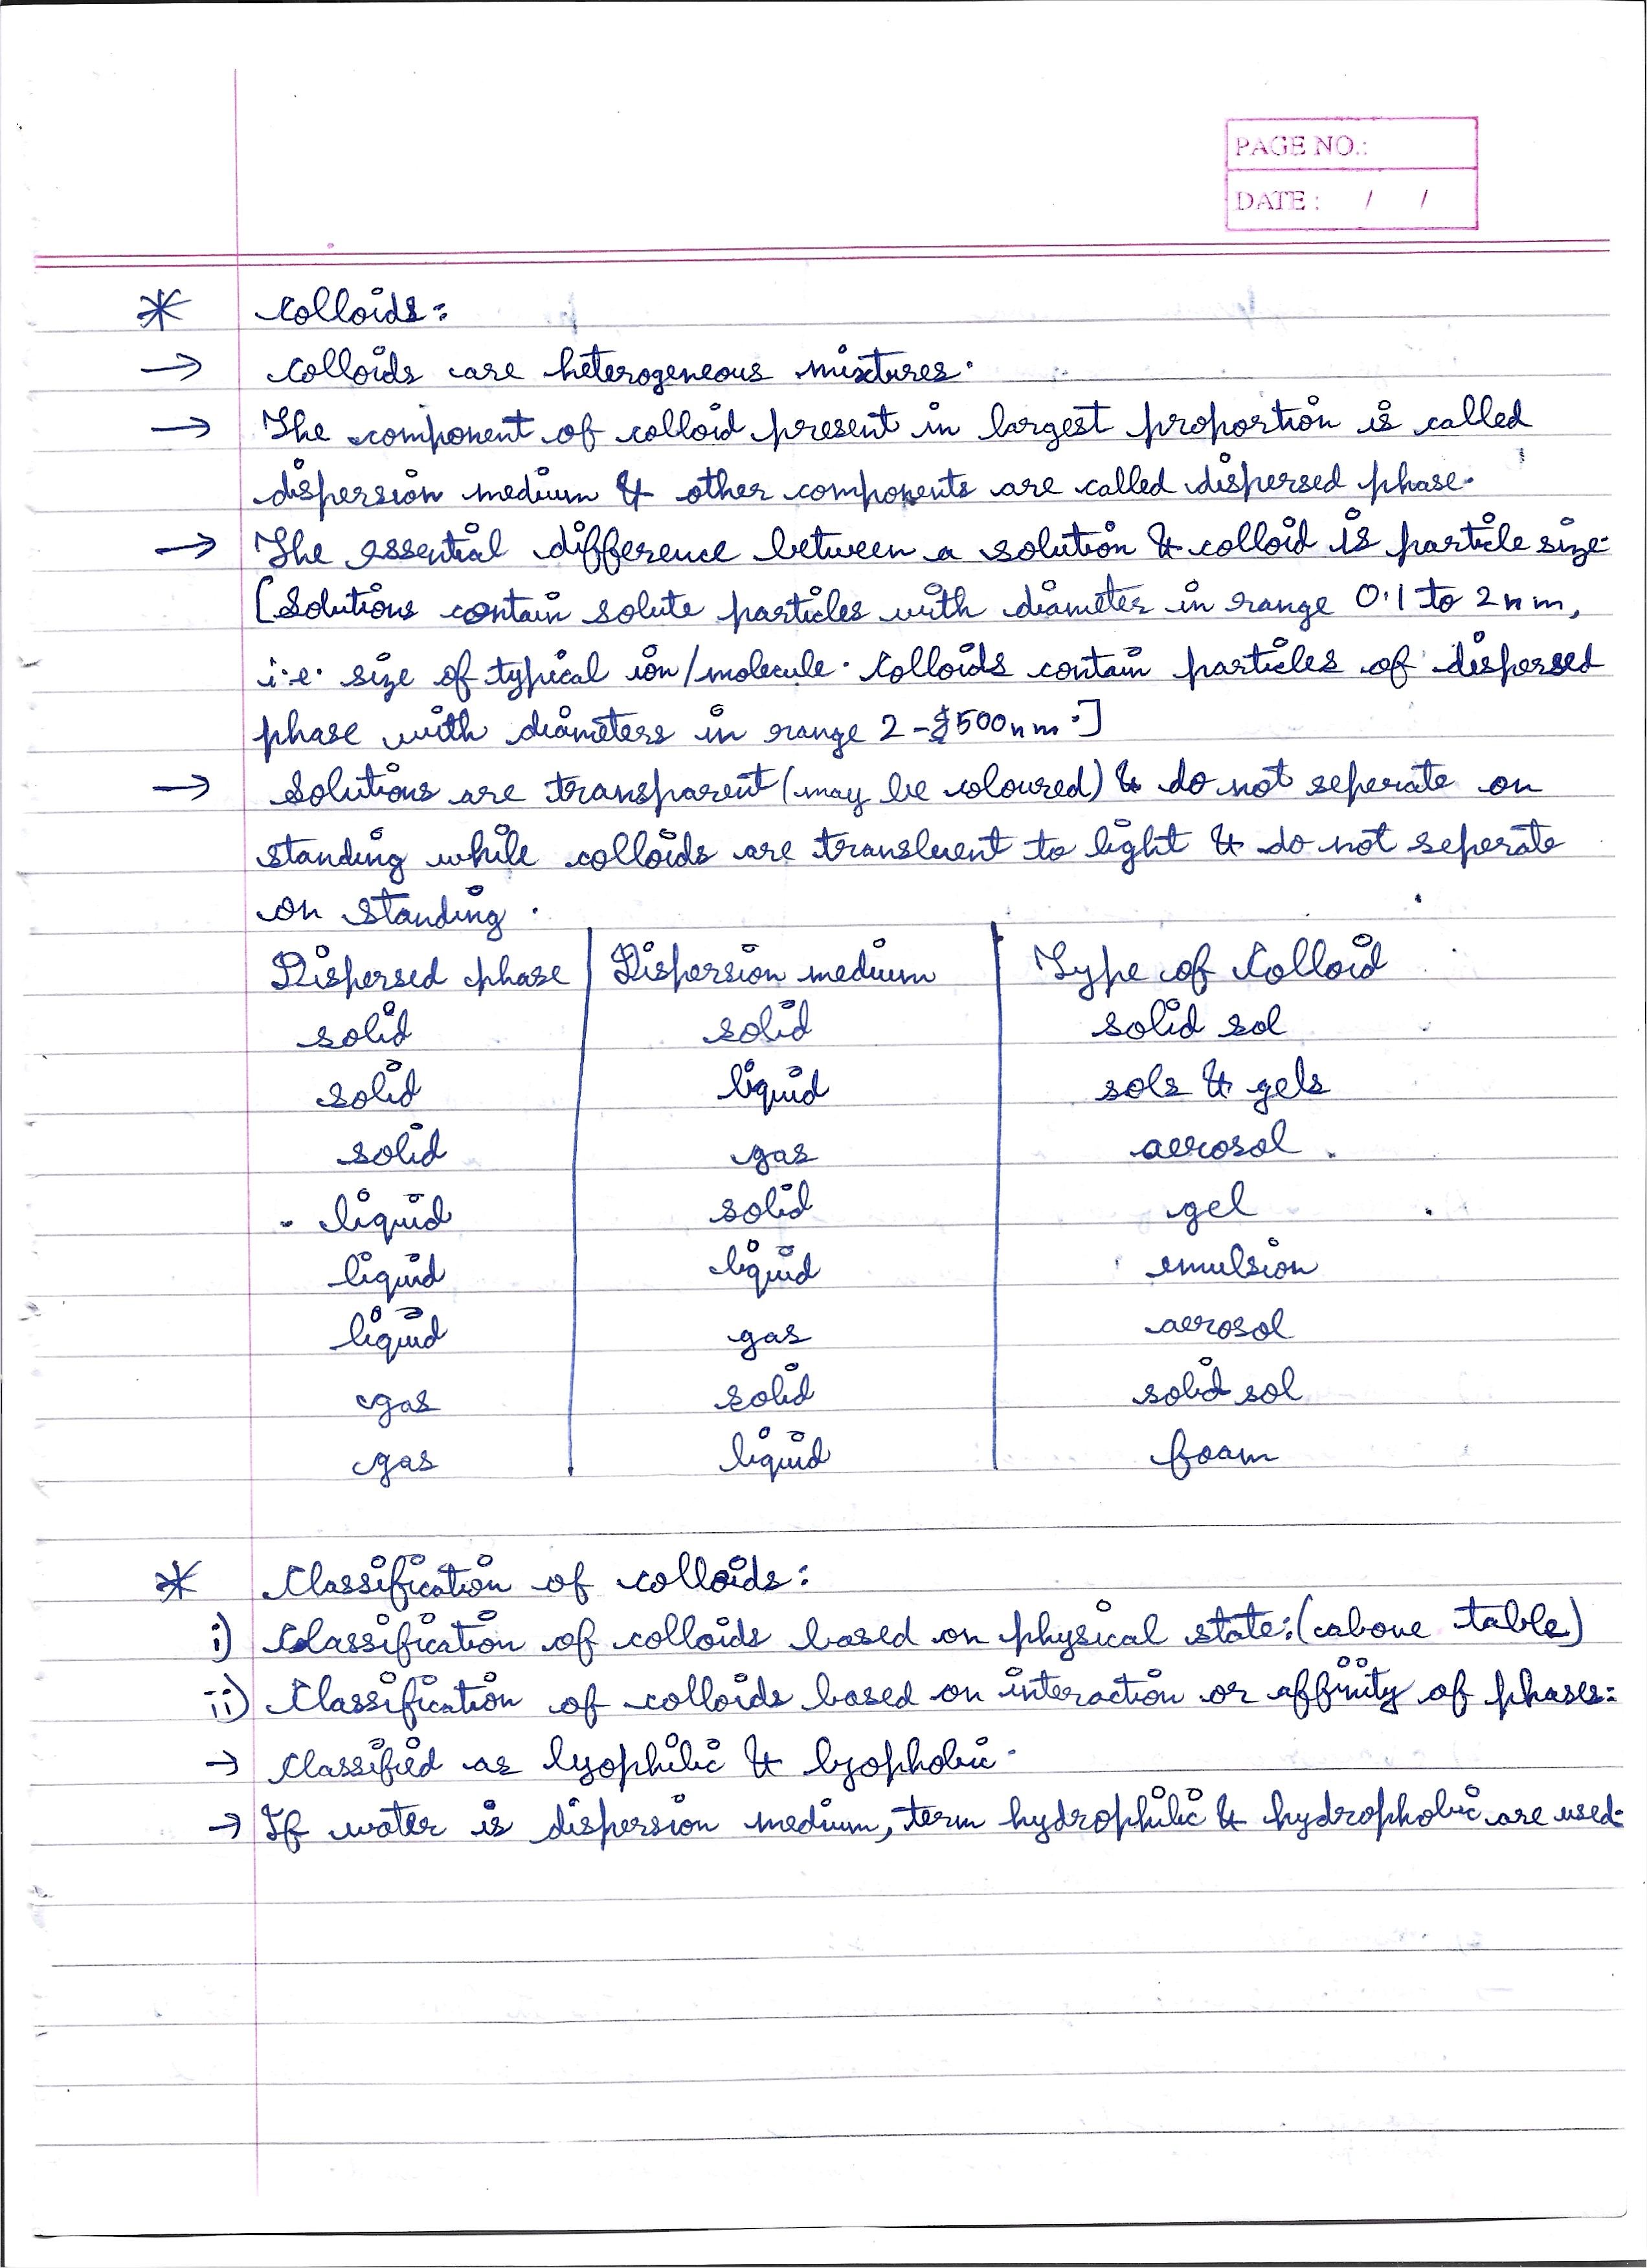 PAGE NO.:
DATE : / /
* Colloids:
→ Colloids are heterogeneous mixtures.
→ The component of colloid present in largest proportion is called
dispersion medium & other components are called dispersed phase.
→ The essential difference between a solution & colloid is particle size.
[Solutions contain solute particles with diameter in range 0.1 to 2nm,
i.e. size of typical ion/molecule. Colloids contain particles of dispersed
phase with diameters in range 2-500nm.]
→ Solutions are transparent (may be coloured) & do not seperate on
standing while colloids are transluent to light & do not seperate
on standing.
Dispersed phase | Dispersion medium | Type of Colloid
solid solid solid sol
solid liquid sols & gels
solid gas aerosol
liquid solid gel
liquid liquid emulsion
liquid gas aerosol
gas solid solid sol
gas liquid foam
* Classification of colloids:
i) Classification of colloids based on physical state: (above table)
ii) Classification of colloids based on interaction or affinity of phases:
→ Classified as lyophilic & lyophobic.
→ If water is dispersion medium, term hydrophilic & hydrophobic are used.